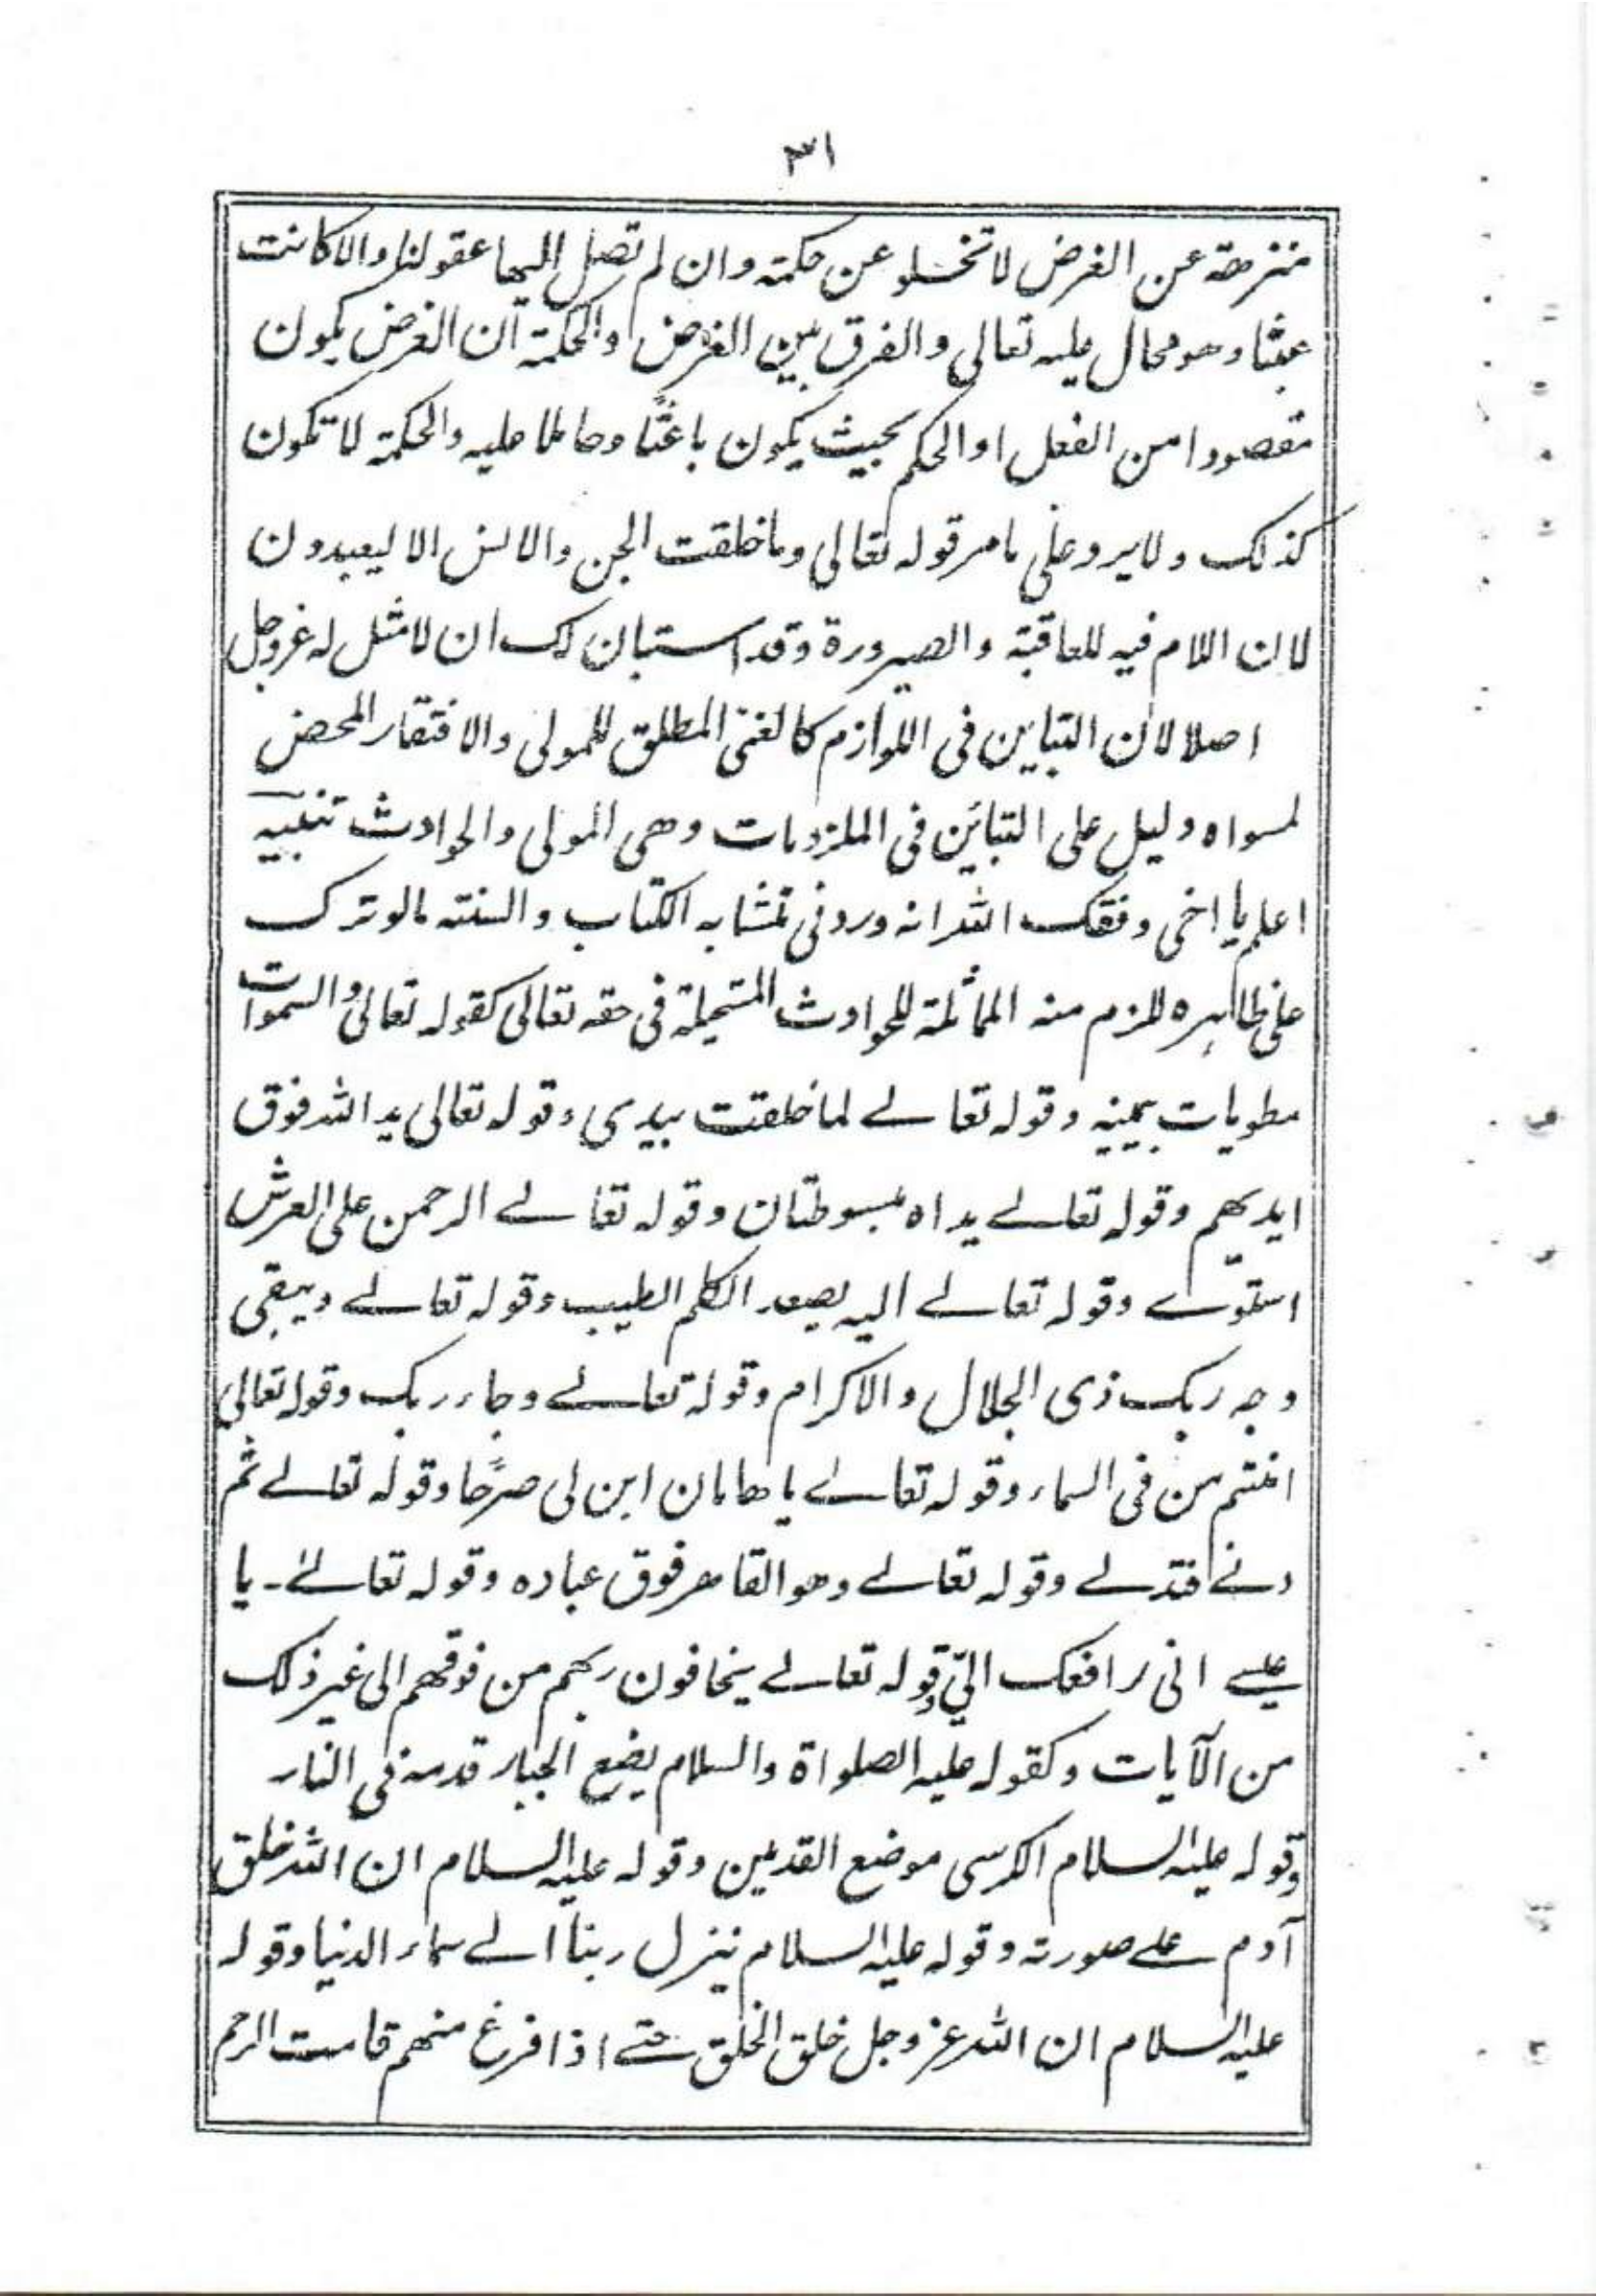 ٣١
منزهة عن الغرض لا تخلو عن حكمته وان لم تصل اليها عقولنا والا كانت
عبثا وهو محال عليه تعالى والفرق بين الغرض والحكمة أن الغرض يكون
مقصودا من الفعل او الحكم بحيث يكون باعثًا وحاملا عليه والحكمة لا تكون
كذلك ولا يرد على ما مر قوله تعالى وما خلقت الجن والانس الا ليعبدون
لان اللام فيه للعاقبة والصيرورة وقد استبان لك ان لا مثل له عزوجل
اصلا لان التباين فى اللوازم كالغنى المطلق للمولى والافتقار المحض
لمسواه دليل على التبائن فى الملزومات وهى المولى والحوادث تنبيه
اعلم يا اخى وفقك الله انه ورد فى متشابه الكتاب والسنته مالو ترك
على ظاهره للزم منه المماثلة للحوادث المستحيلة فى حقه تعالى كقوله تعالى والسموات
مطويات بيمينه وقوله تعالے لما خلقت بيدى وقوله تعالى يد الله فوق
ايديهم وقوله تعالے يداه مبسوطتان وقوله تعالے الرحمن على العرش
استوّے وقوله تعالے اليه يصعد الكلم الطيب وقوله تعالے ويبقى
وجه ربك ذى الجلال والاكرام وقوله تعالے وجاء ربك وقوله تعالى
امنتم من فى السماء وقوله تعالے يا هامان ابن لى صرحًا وقوله تعالے ثم
دنے فتدلے وقوله تعالے وهو القاهر فوق عباده وقوله تعالےٰ۔ يا
عيسے انى رافعك الىّ وقوله تعالے يخافون ربهم من فوقهم الى غير ذلك
من الآيات وكقوله عليه الصلواة والسلام يضع الجبار قدمه فى النار
وقوله عليه السلام الكرسى موضع القدمين وقوله عليه السلام ان الله خلق
آدم علے صورته وقوله عليه السلام ينزل ربنا الے سماء الدنيا وقوله
عليه السلام ان الله عز وجل خلق الخلق حتے اذا فرغ منهم قامت الرحم